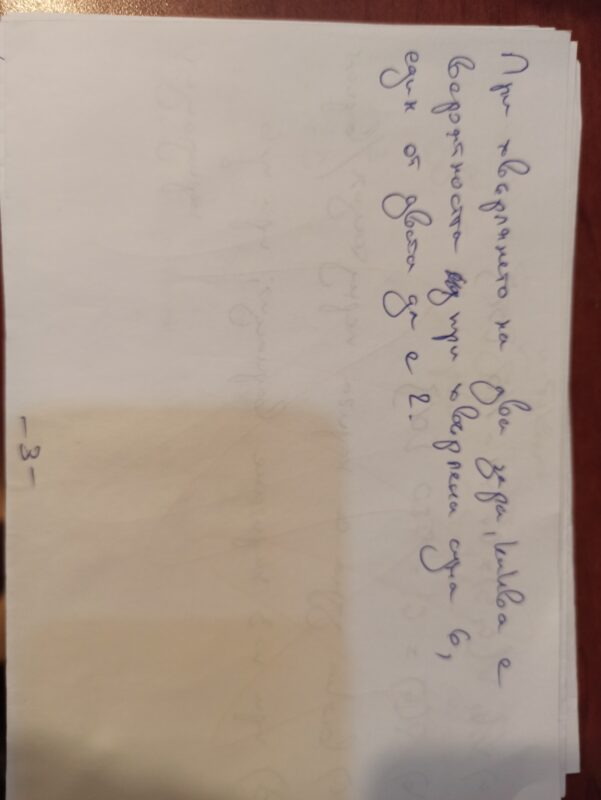 При хвърлянето на два зара, каква е
вероятността при хвърлена сума 6,
един от двата да е 2.
-3-